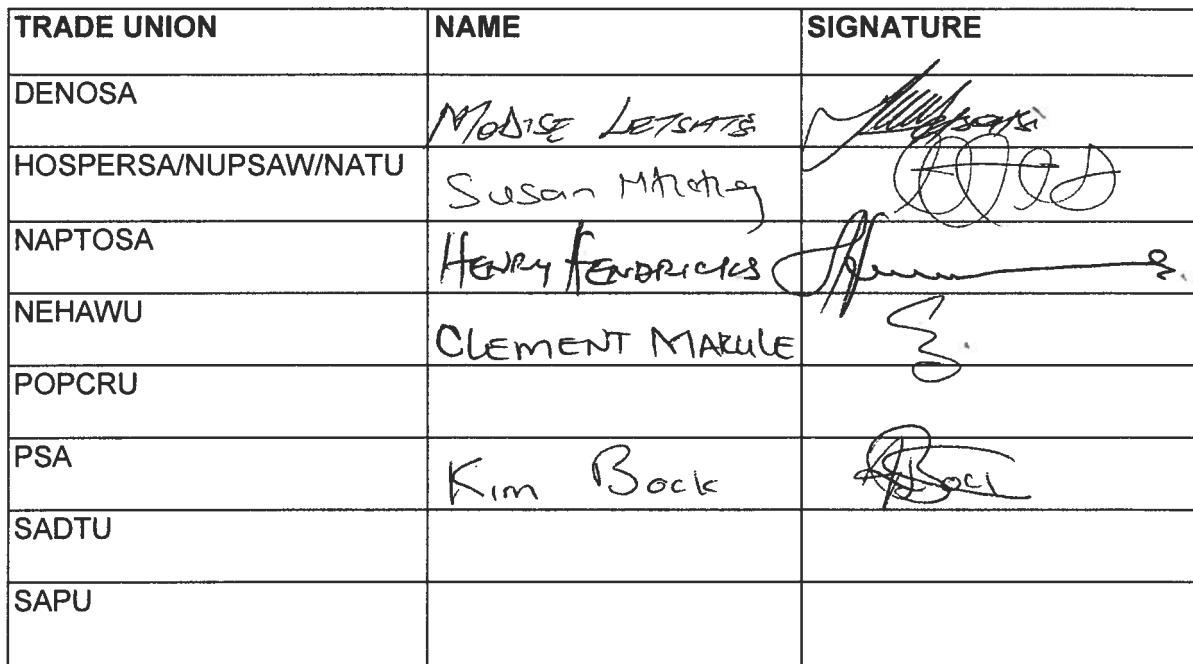 TRADE UNION NAME SIGNATURE
DENOSA MODISE LETSATSI
HOSPERSA/NUPSAW/NATU Susan
NAPTOSA HENRY HENDRICKS
NEHAWU CLEMENT MARULE
POPCRU
PSA Kim Bock Bock
SADTU
SAPU